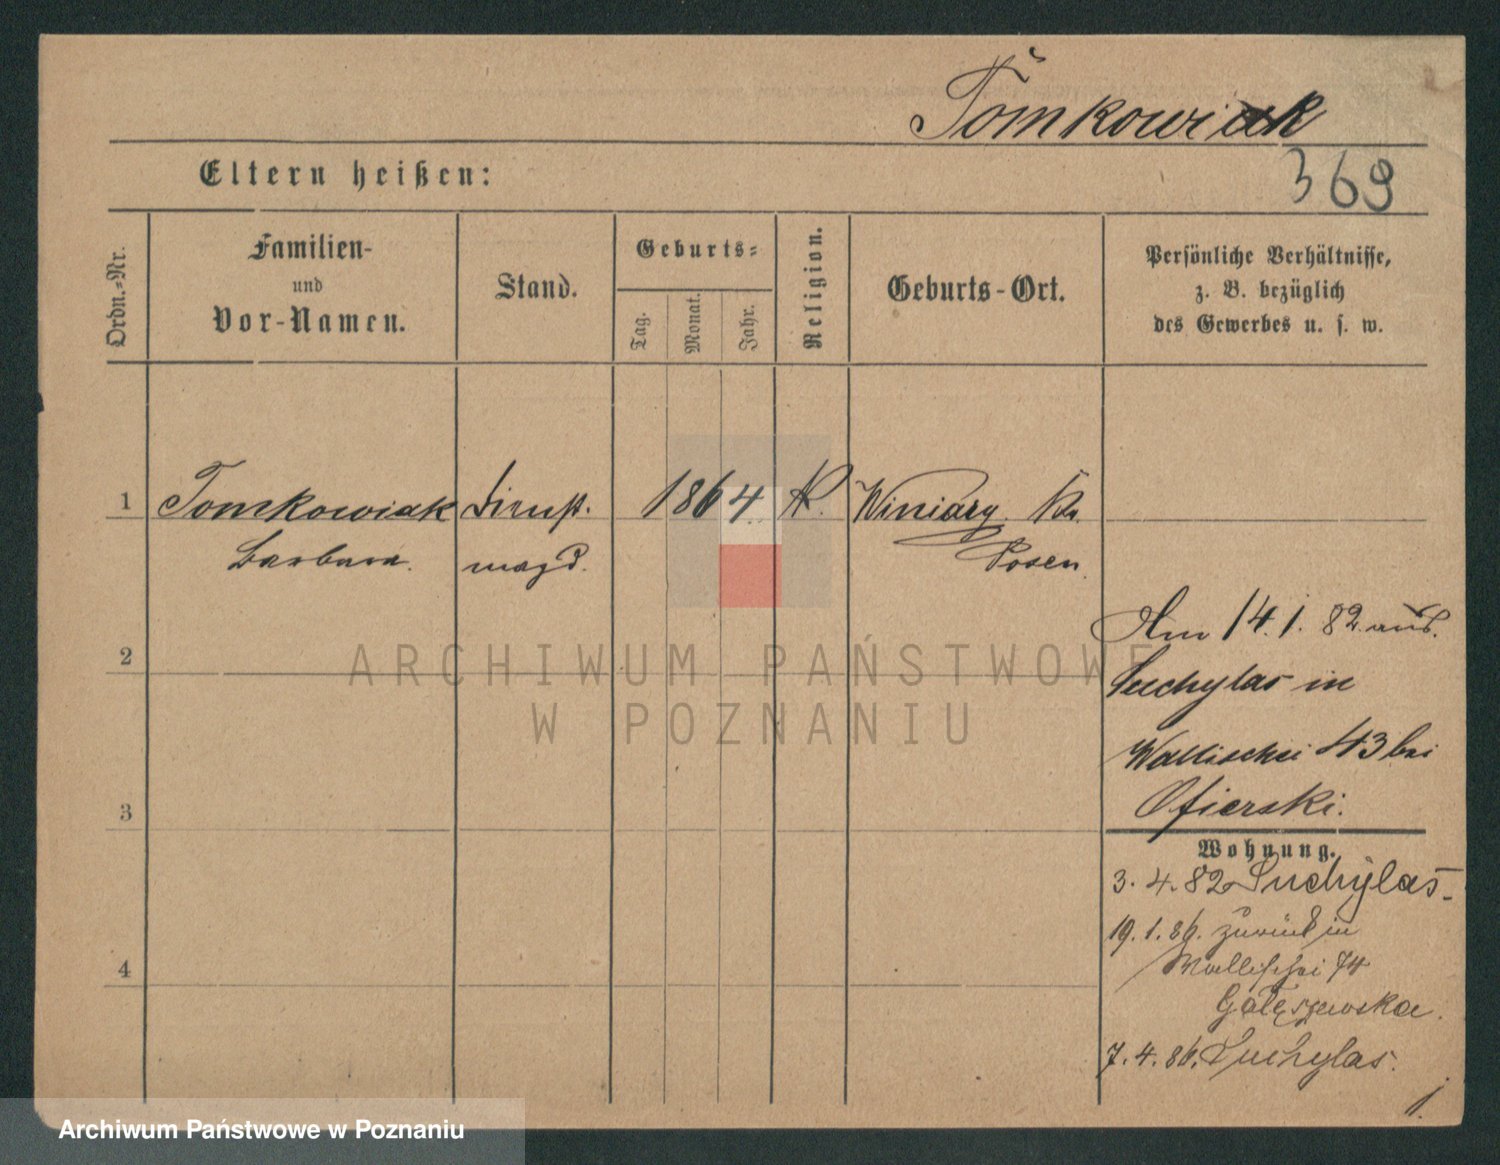 Tomkowiak
369
Eltern heißen:
Ordn.-Nr.
Familien-
und
Vor-Namen.
Stand.
Geburts-
Tag.
Monat.
Jahr.
Religion.
Geburts-Ort.
Persönliche Verhältnisse,
z. B. bezüglich
des Gewerbes u. s. w.
1 Tomkowiak Dienst. 1864 K. Winiary Kr.
Barbara. magd. Posen.
Am 14.1.82. aus.
2
Suchylas in
Wallischei 43 bei
3
Ofierski.
Wohnung.
3.4.82 Suchylas.
19.1.86. zurück in
4
Wallischei 74
7.4.86. Suchylas.
ARCHIWUM PAŃSTWOWE
W POZNANIU
Archiwum Państwowe w Poznaniu